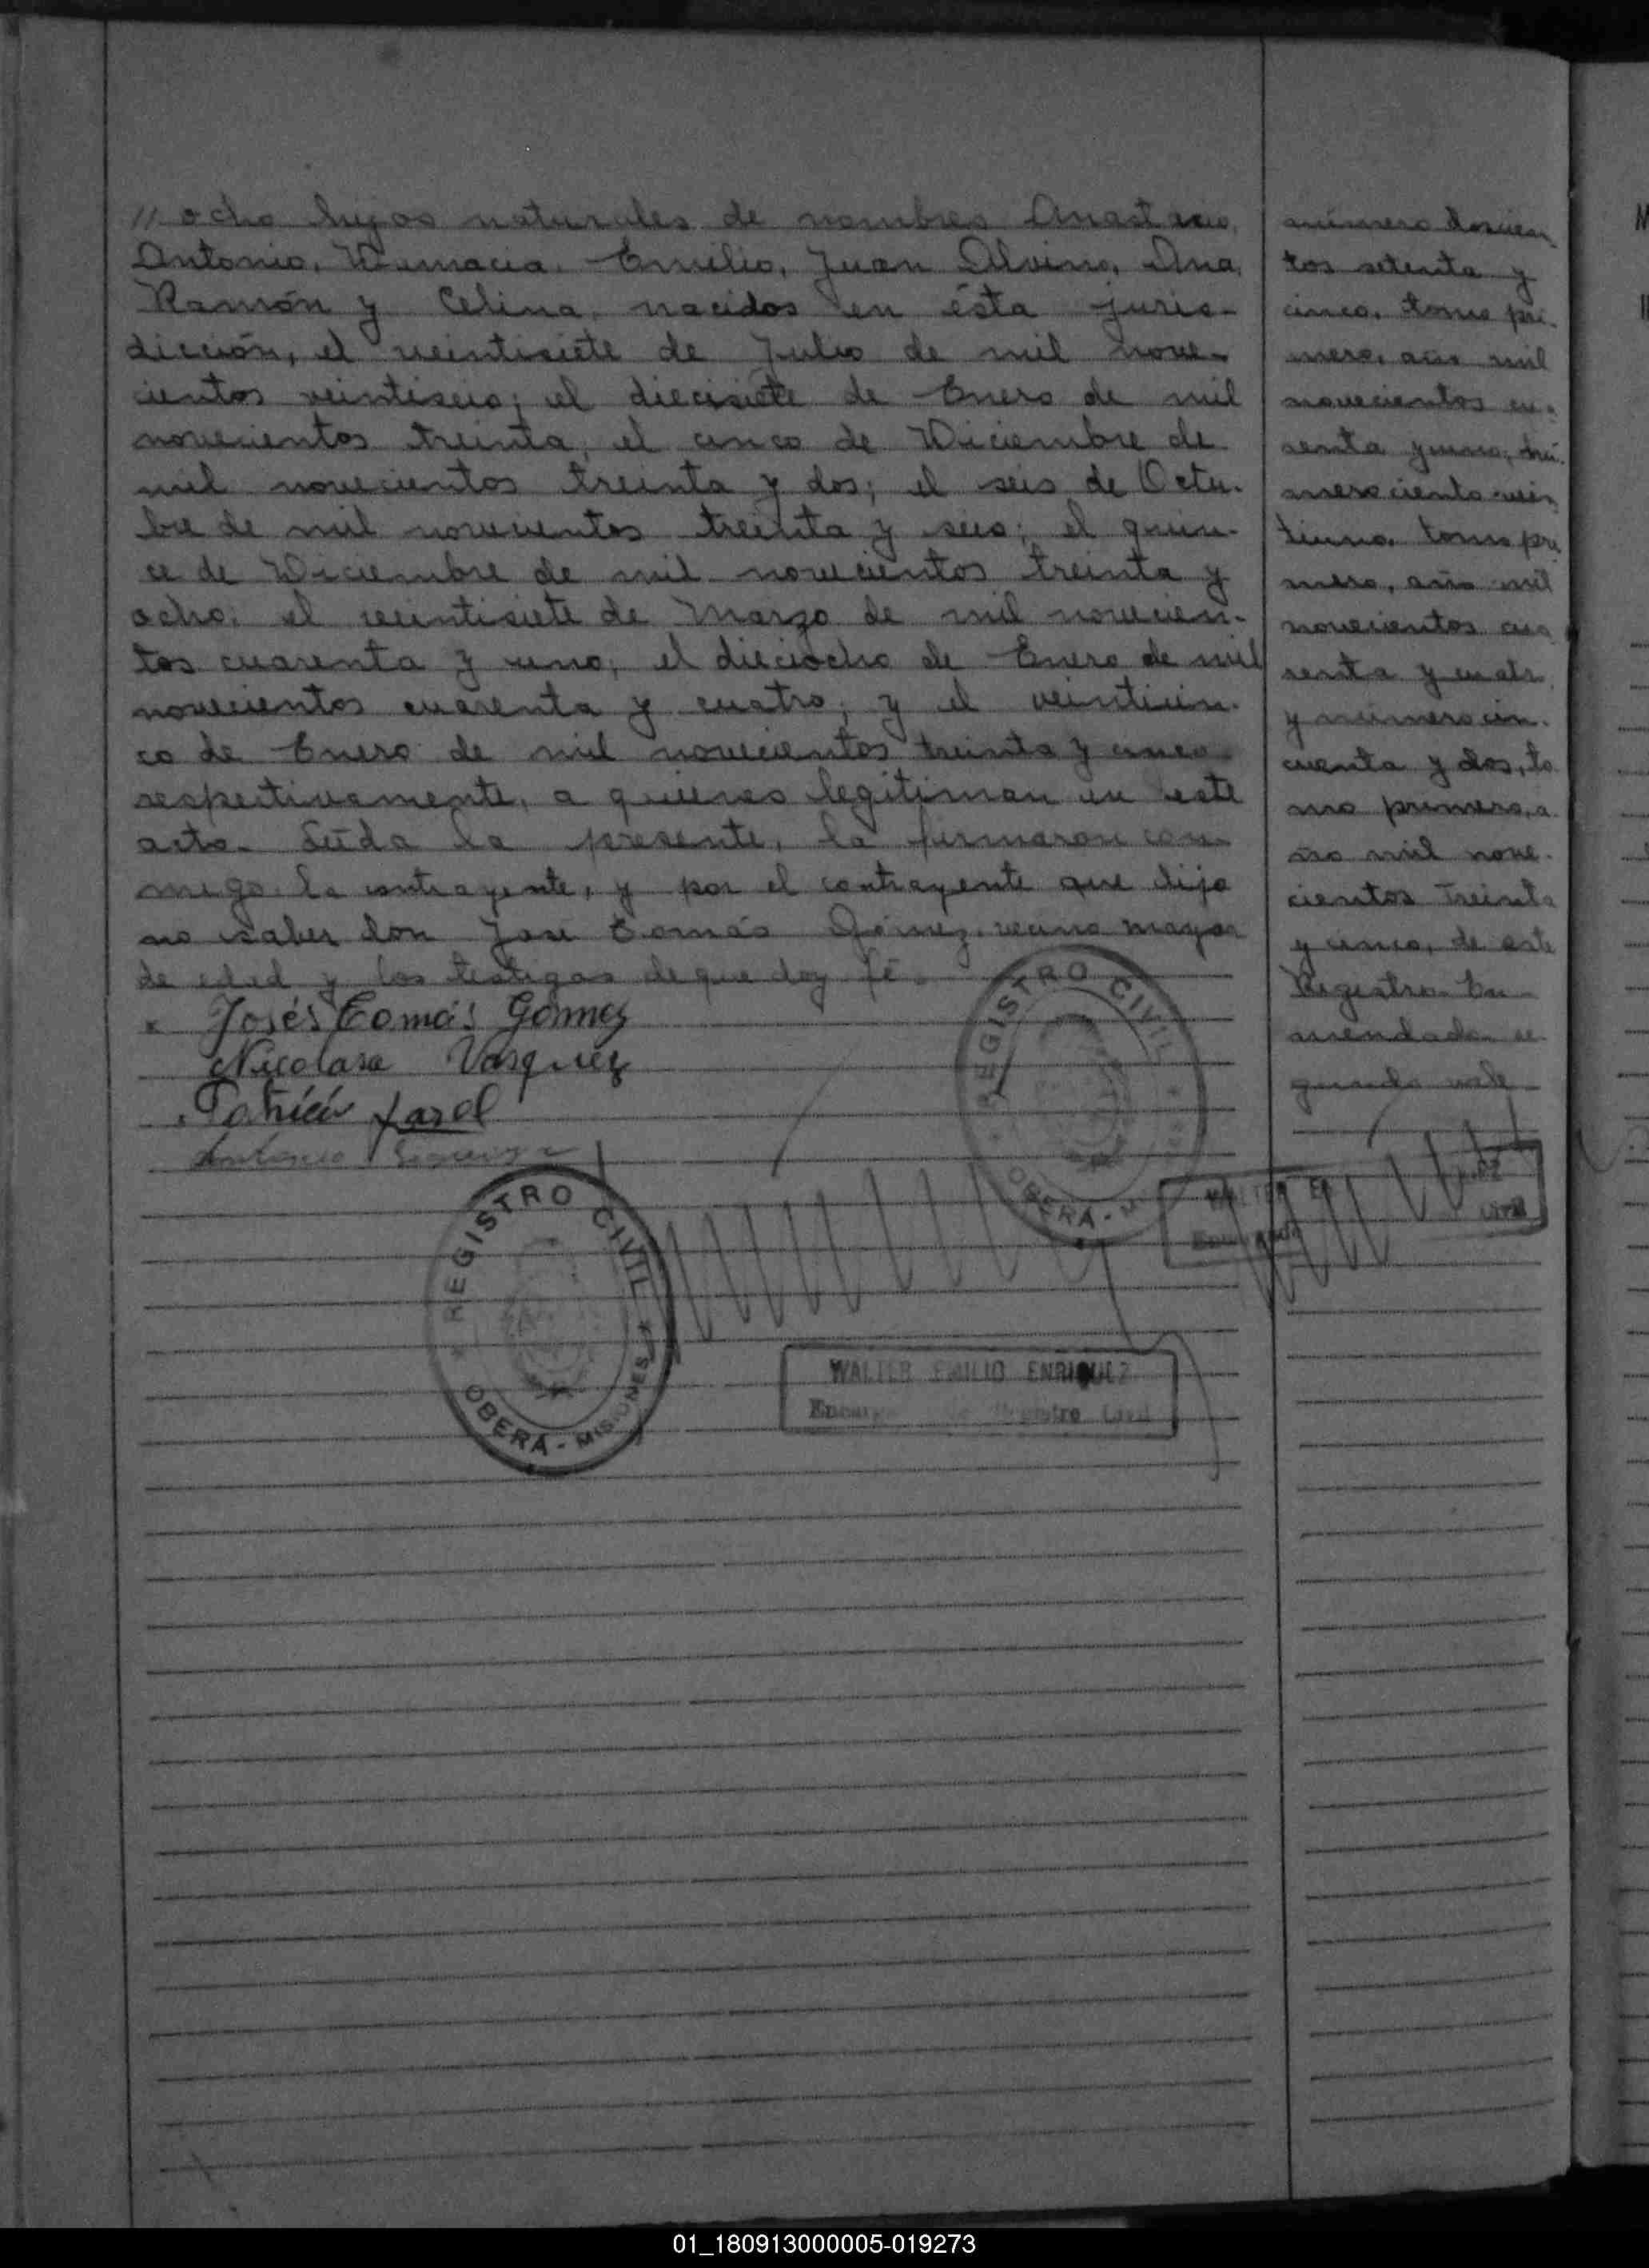 // ocho hijos naturales de nombres Anastacio,
Antonio, Damacia, Emilio, Juan Alvino, Ana,
Ramón y Celina, nacidos en ésta juris-
dicción, el veintisiete de Julio de mil nove-
cientos veintiseis; el diecisiete de Enero de mil
novecientos treinta; el cinco de Diciembre de
mil novecientos treinta y dos; el seis de Octu-
bre de mil novecientos treinta y seis; el quin-
ce de Diciembre de mil novecientos treinta y
ocho; el veintisiete de Marzo de mil novecien-
tos cuarenta y uno; el dieciocho de Enero de mil
novecientos cuarenta y cuatro; y el veinticin-
co de Enero de mil novecientos treinta y cinco
respectivamente, a quienes legitiman en este
acto. Leída la presente, la firmaron con-
migo la contrayente, y por el contrayente que dijo
no saber don José Tomás Gómez, vecino mayor
de edad y los testigos de que doy fé.
Josés Tomás Gómez
Nicolasa Vasquez
Antonio
REGISTRO CIVIL
OBERÁ - MISIONES
WALTER EMILIO ENRIQUEZ
Registro Civil
número doscien-
tos setenta y
cinco, tomo pri-
mero, año mil
novecientos cua-
renta y uno; nú-
mero ciento vein-
tiuno, tomo pri-
mero, año mil
novecientos cua-
renta y cuatro,
y número cin-
cuenta y dos, to-
mo primero, a-
ño mil nove-
cientos treinta
y cinco, de este
Registro. En-
mendado: se-
gundo vale
REGISTRO CIVIL
OBERÁ - MI
WALTER E
Civil
01_180913000005-019273